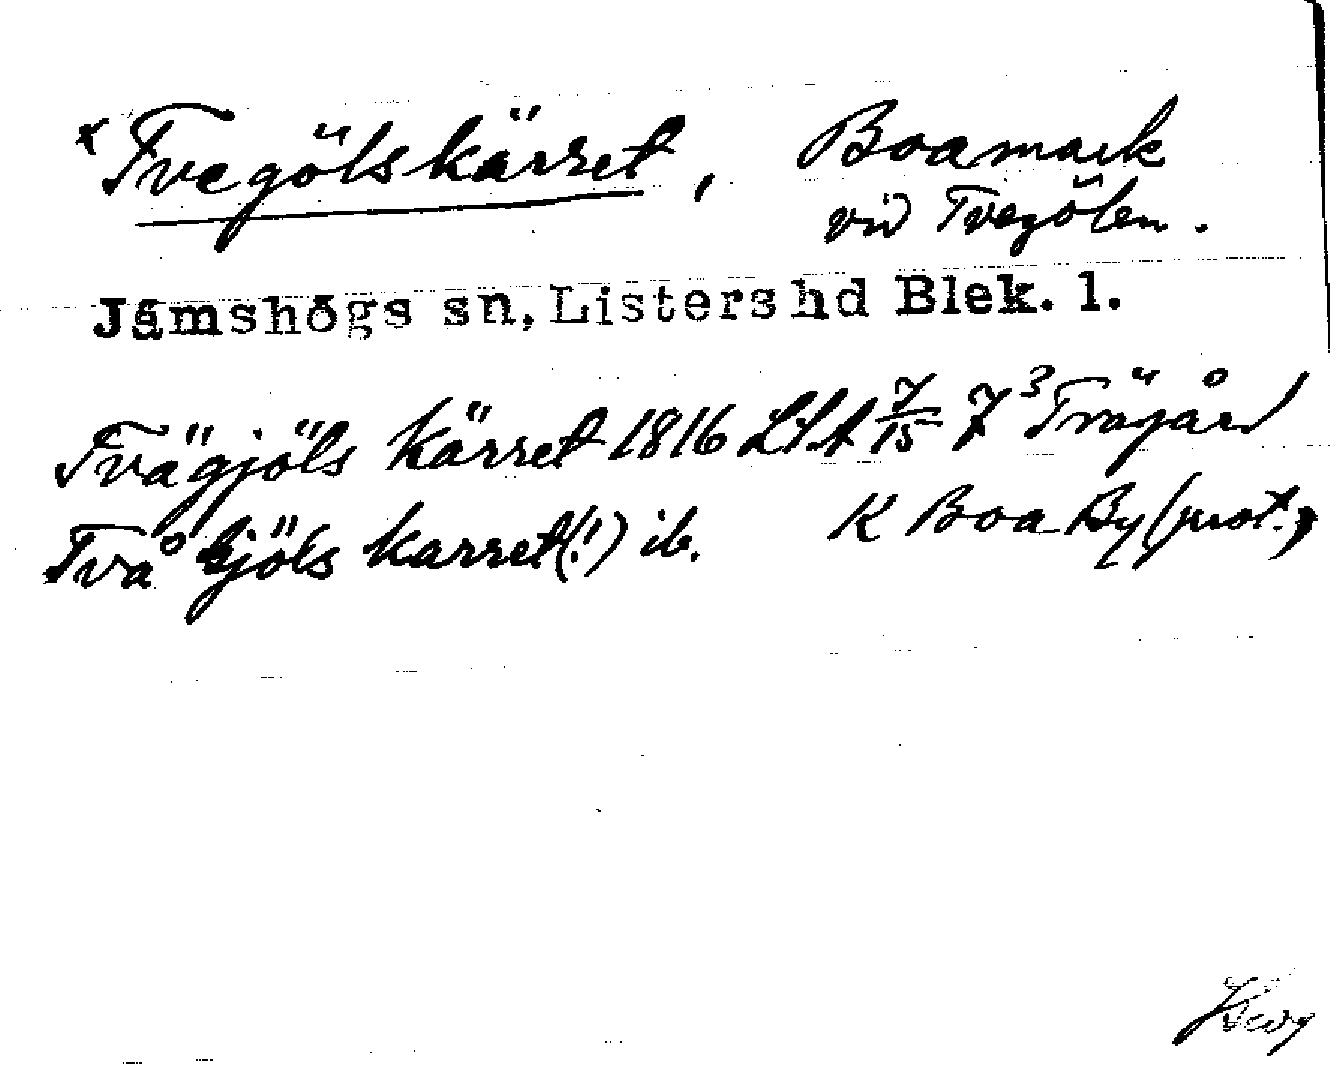 x Tvegölskärret, Boamark
vid Tvegölen.
Jämshögs sn, Listers hd Blek. l.
Tvägjöls Kärret 1816 LSA 7/15 7³ Trägård
Två Gjöls karret(!) ib. K Boa By (prot.)